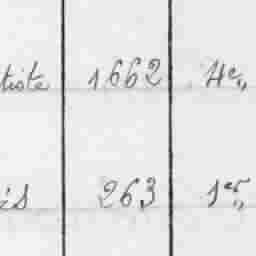 tiste 1662 4e „
is 263 1er „